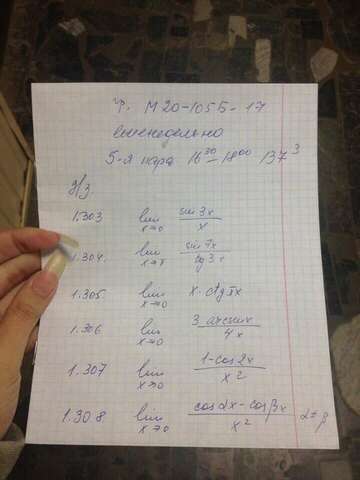 гр. М20-105Б-17
еженедельно
5-я пара 16³⁰-18⁰⁰ 137³
д/з.
1.303 lim x→0 sin3x/x
1.304. lim x→π sin7x/tg3x
1.305 lim x→0 x·ctgπx
1.306 lim x→0 3arcsinx/4x
1.307 lim x→0 1-cos2x/x²
1.308 lim x→0 cosαx-cosβx/x² α≠β